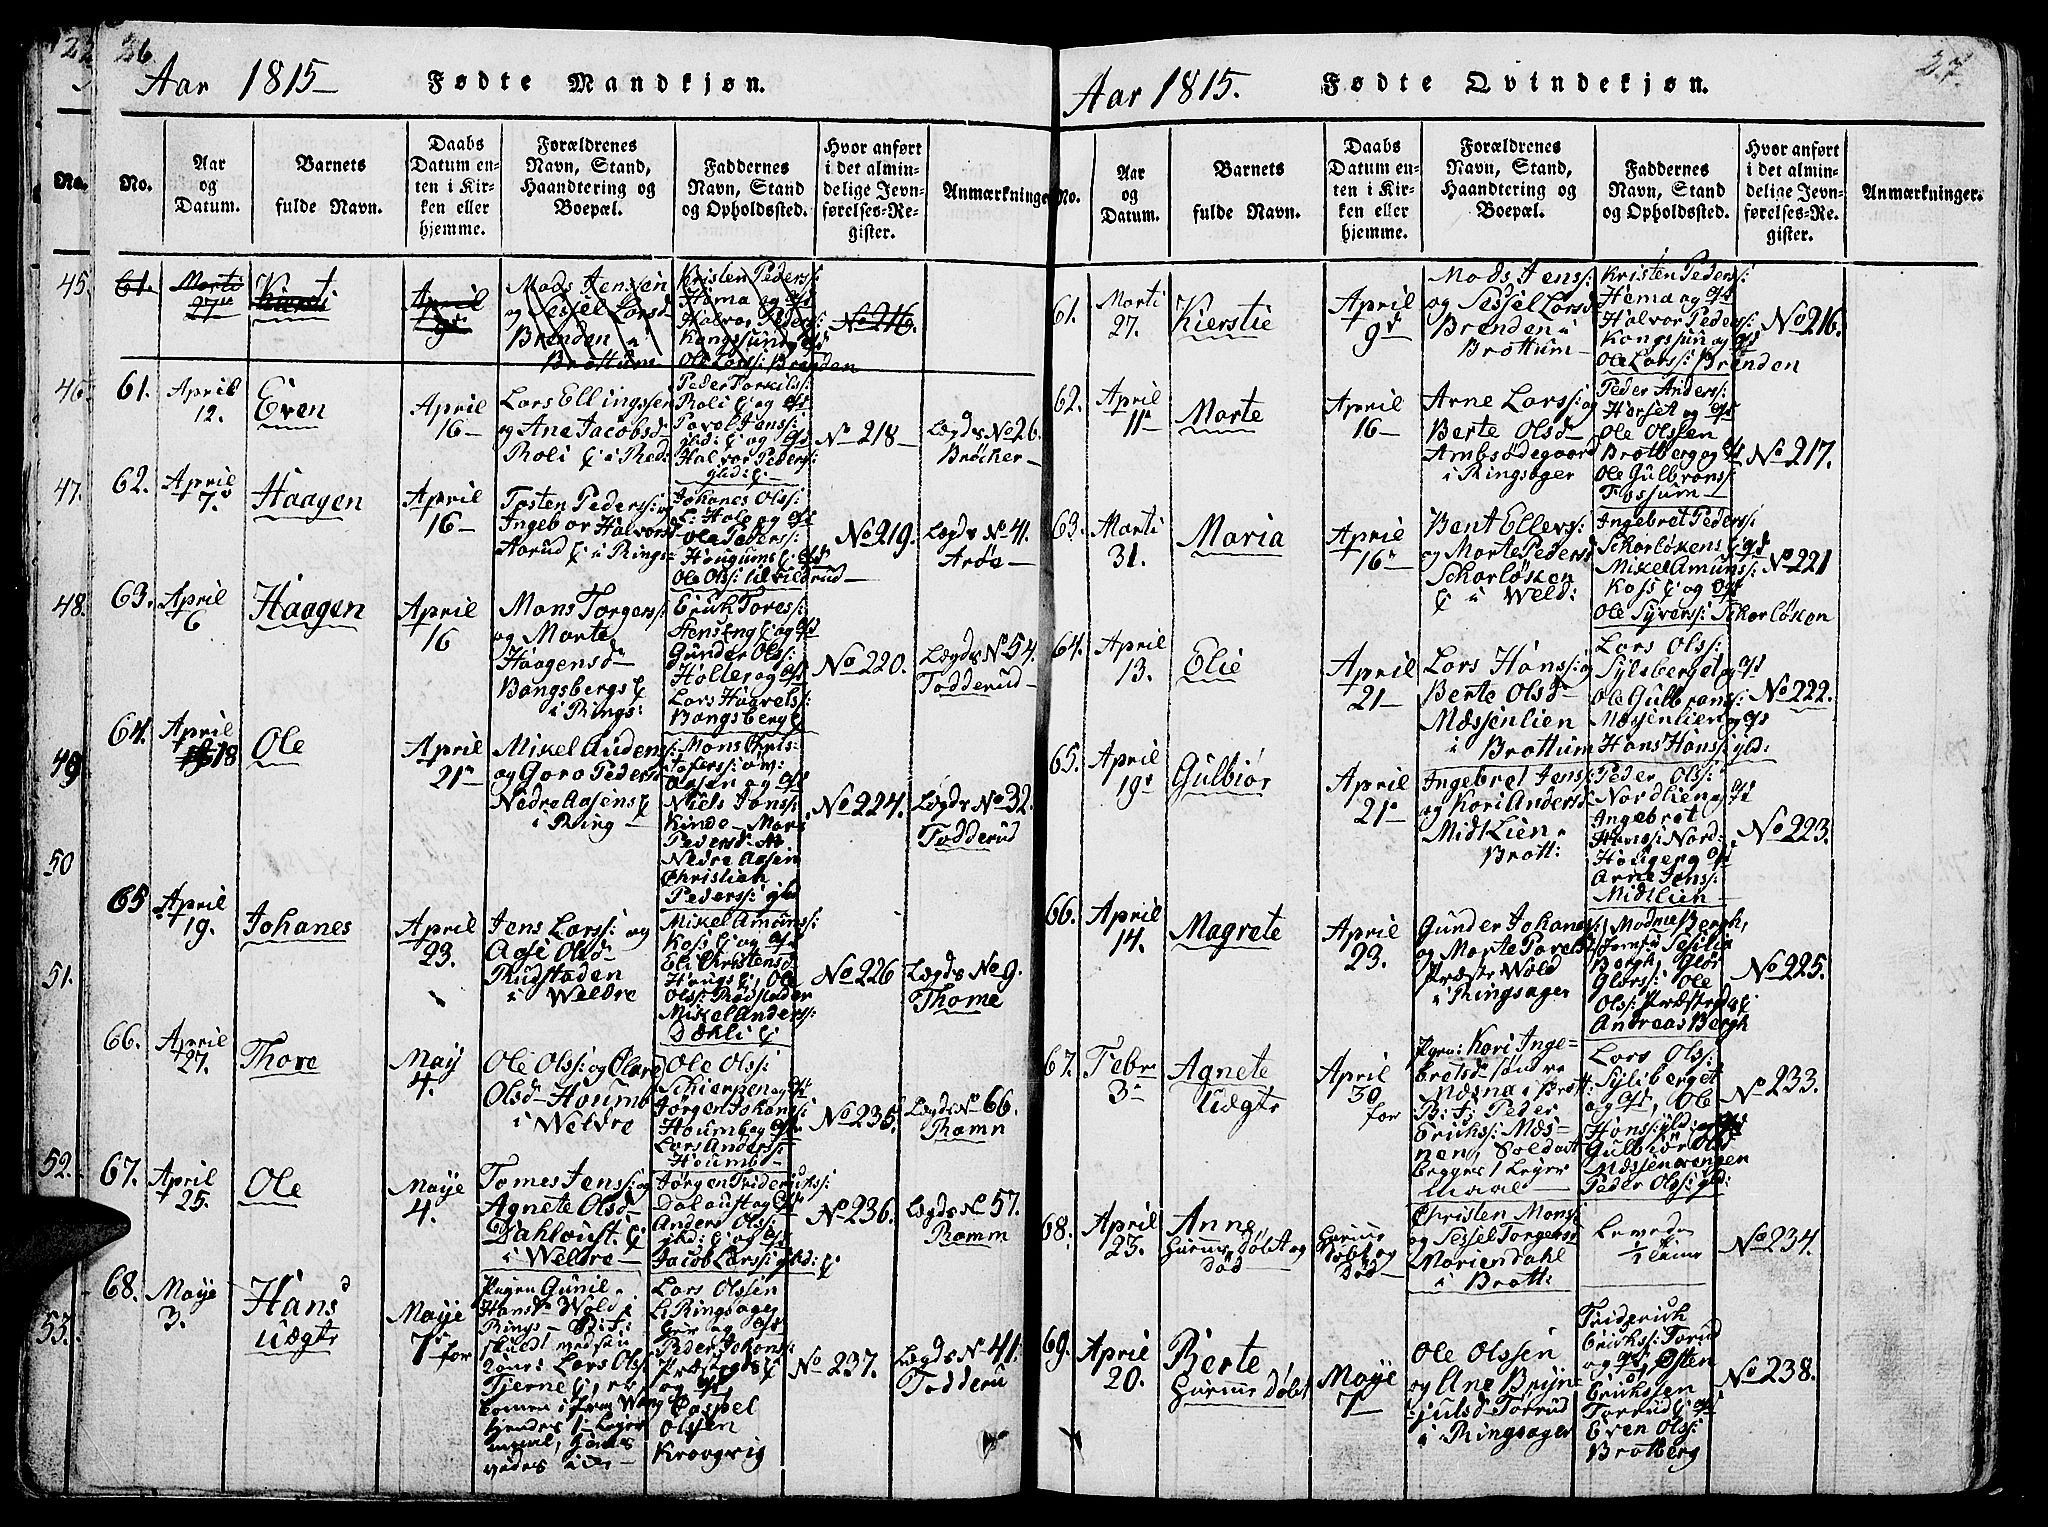 26
Aar 1815 Fødte Mandkjøn.
No.
Aar
og
Datum.
Barnets
fulde Navn.
Daabs
Datum en-
ten i Kir-
ken eller
hjemme.
Forældrenes
Navn, Stand,
Haandtering og
Boepæl.
Faddernes
Navn, Stand
og Opholdssted.
Hvor anført
i det almin-
delige Jevn-
førelses-Re-
gister.
Anmærkninger
61.
Marti
27
April
9
Mads Jenssen
og Sessel Larsd
Brenden i
Brøttum
Kristen Peders:
Hema og
Halvor Peders:
Kongssund
Ole Larss: Brenden
No 216.
61.
April
12.
Even
April
16
Lars Ellingssen
og Ane Jacobsd
Roli i Red:
Peder Torkilds:
Roli og
Povel Jens:
Halvor Peders:
No 218
Lægds No 26.
Brøcher
62.
April
7.
Haagen
April
16
Tosten Peders:
Ingebor Halvorsd
Aarud i Rings
Johanes Olss:
Hole og
Ole Peders:
Hougums
Ole Olss:
No 219.
Lægds No 41.
Aröe
63.
April
6
Haagen
April
16
Mons Torgers:
og Marte
Haagensd
Bangsbergs
i Rings:
Erik Tores:
Stenseng og
Gunder Olss:
Holler og
Lars Haavels:
Bangsberg
No 220.
Lægds No 54.
Todderud
64.
April
18
Ole
April
21
Mikel Anders:
og Goro Pedersd
Nedre Aasens
i Ring
Mons Kris-
tofers:
Aasen og
Niels Jons:
Kinde Mari
Pedersd:
Nedre Aasen
Christian
Peders:
No 224.
Lægds No 32.
Todderud
65
April
19.
Johanes
April
23.
Jens Larss: og
Aase Olsd
Rudstaden
i Weldre
Mikel Amuns:
Koss og
Eli Christensd
Haugs, Ole
Olss: Rudstaden
Mikel Anders:
Dæhli
No 226
Lægds No 9.
Thome
66.
April
27.
Thore
May
4.
Ole Olss: og Olave
Olsd Houmb
i Weldre
Ole Olss:
Schierpen og
Jørgen Johans:
Houmb og
Lars Anders:
Houmb
No 235.
Lægds No 66.
Ramn
67.
April
25.
Ole
Maye
4.
Tomes Jens: og
Agnete Olsd
Dahloust
i Weldre
Jørgen Frideriks:
Dalaust og
Anders Olss:
Jacob Larss:
No 236.
Lægds No 57.
Ramm
68.
Maye
3.
Hans
Uægte
Maye
7
for
Pigen Gunil
Hansd Wold
Rings B: F:
Lars Olss:
Tjerne
Lars Olssen
Ringsager
Peder Johans:
Caspel
Olssen
Kroogvig
No 237.
Lægds No 41.
Todderu
27
Aar 1815. Fødte Qvindekjøn.
No.
Aar
og
Datum.
Barnets
fulde Navn.
Daabs
Datum en-
ten i Kir-
ken eller
hjemme.
Forældrenes
Navn, Stand,
Haandtering og
Boepæl.
Faddernes
Navn, Stand
og Opholdssted.
Hvor anført
i det almin-
delige Jevn-
førelses-Re-
gister.
Anmærkninger.
61.
Marti
27.
Kierstie
April
9
Mads Jens:
og Sessel Larsd
Brenden i
Brøttum
Kristen Peders:
Hema og
Halvor Peders:
Kongssun og
Ole Larss: Brenden
No 216.
62.
April
11
Marte
April
16
Arne Lars: og
Berte Olsd
Ambsødegaard
i Ringsager
Peder Anders:
Harset og
Ole Olssen
Brotberg og
Ole Gulbrans:
Fossum
No 217.
63.
Marti
31.
Maria
April
16
Bent Ellers:
og Marte Pedersd
Scharløsken
i Weld:
Ingebret Peders:
Scharløskens
Mikel Amuns:
Koss og
Ole Syvers: Scharløsken
No 221
64.
April
13.
Elie
April
21
Lars Hans: og
Berte Olsd
Mæssenlien
i Brøttum
Lars Olss:
Syljberget og
Ole Gulbrans:
Mæssenlien og
Hans Hans:
No 222.
65.
April
19
Gulbiør
April
21
Ingebret Jens:
og Kari Andersd
Midtlien
Brøtt:
Peder Olss:
Nordlien
Ingebret
Hans: Nord-
Haugen og
Arne Jens:
Midtlien
No 223.
66.
April
14.
Magrete
April
23.
Gunder Johanes
og Marte Povelsd
Præste Wold
i Ringsager
Madme Bergh,
Jomfru Sesilia
Bergh,
Ole
Olss:
Andreas Bergh
No 225.
67.
Febr
3
Agnete
Uægte
April
30
for
Kari Inge-
bretsd Søndre
Mæsna i Brøtt
B: F: Peder
Eriks: Mæs-
nen, Soldat
begges 1 Leyer-
maal
Lars Olss:
Syljberget
og, Ole
Hans:
Gulbiør Olsd
Mæssenengen
Peder Olss:
No 233.
68.
April
23.
Anne
Døbt og
Død
Døbt og
Død
Christen Mons:
og Sessel Torgersd
Mariendahl
i Brøtt:
Levede
1/2 Time
No 234.
69.
April
20.
Berte
Døbt
Maye
7
Ole Olssen
og Ane Bryn-
julsd Torrud
i Ringsager
Friderich
Eriks: Torud
og, Østen
Erikssen
Torrud
Even Olss:
Brotberg
No 238.
No.
45.
46.
47.
48.
49.
50
51.
52.
53.